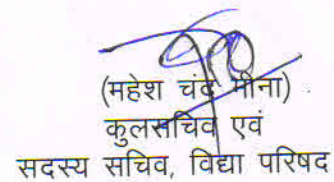 (महेश चंद मीना)
कुलसचिव एवं
सदस्य सचिव, विद्या परिषद